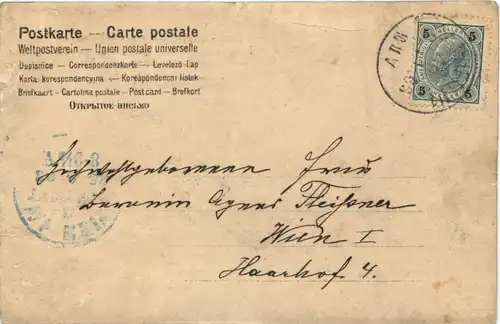 Postkarte — Carte postale
Weltpostverein — Union postale universelle
Dopisnice — Correspondenzkarte — Levelező-Lap
Karta korespondencyjna — Korespondenčni listek
Briefkaart — Cartolina postale — Postcard — Brefkort
Открытое письмо
5 5
5 5
Hochwohlgeborene Frau
Baronin Agnes Fleißner
Wien I
Haarhof 4.